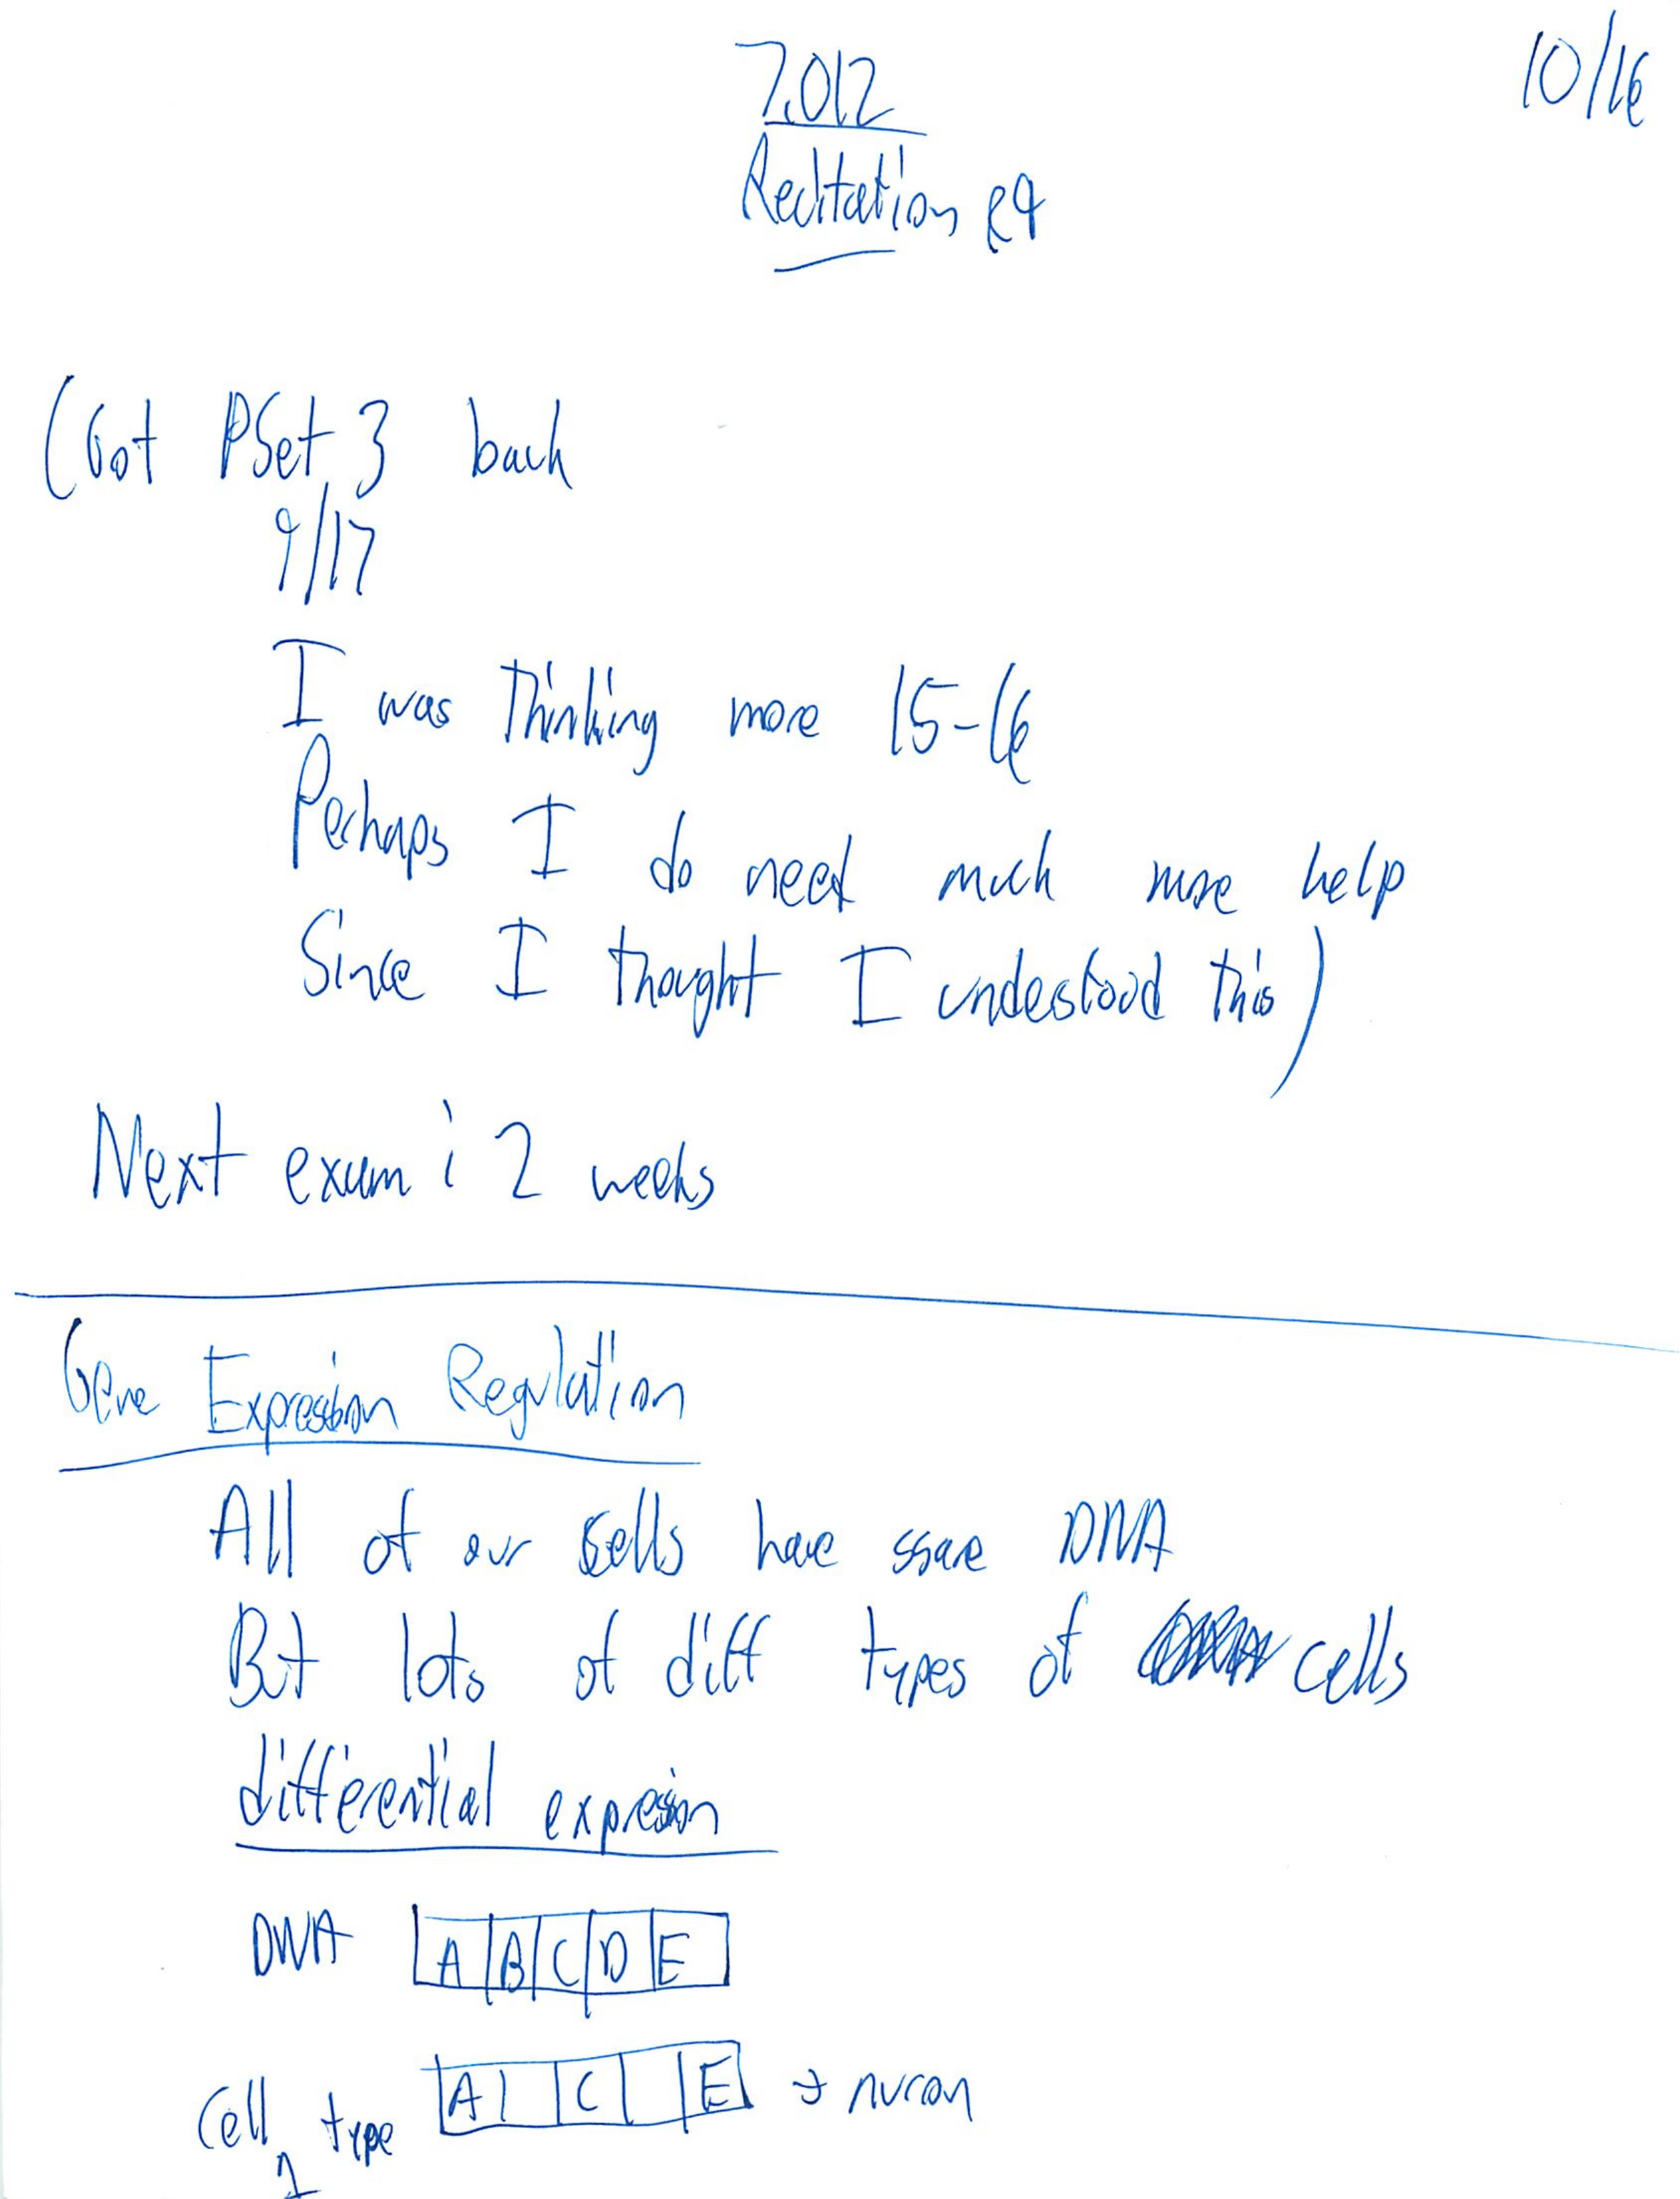 7.012
10/16
Recitation R9
(Got PSet 3 back
9/17
I was thinking more 15-16
Perhaps I do need much more help
Since I thought I understood this)
Next exam i 2 weeks
Gene Expression Regulation
All of our cells have same DNA
But lots of diff types of cells
differential expression
DNA A B C D E
Cell type 1 A C E → nuron